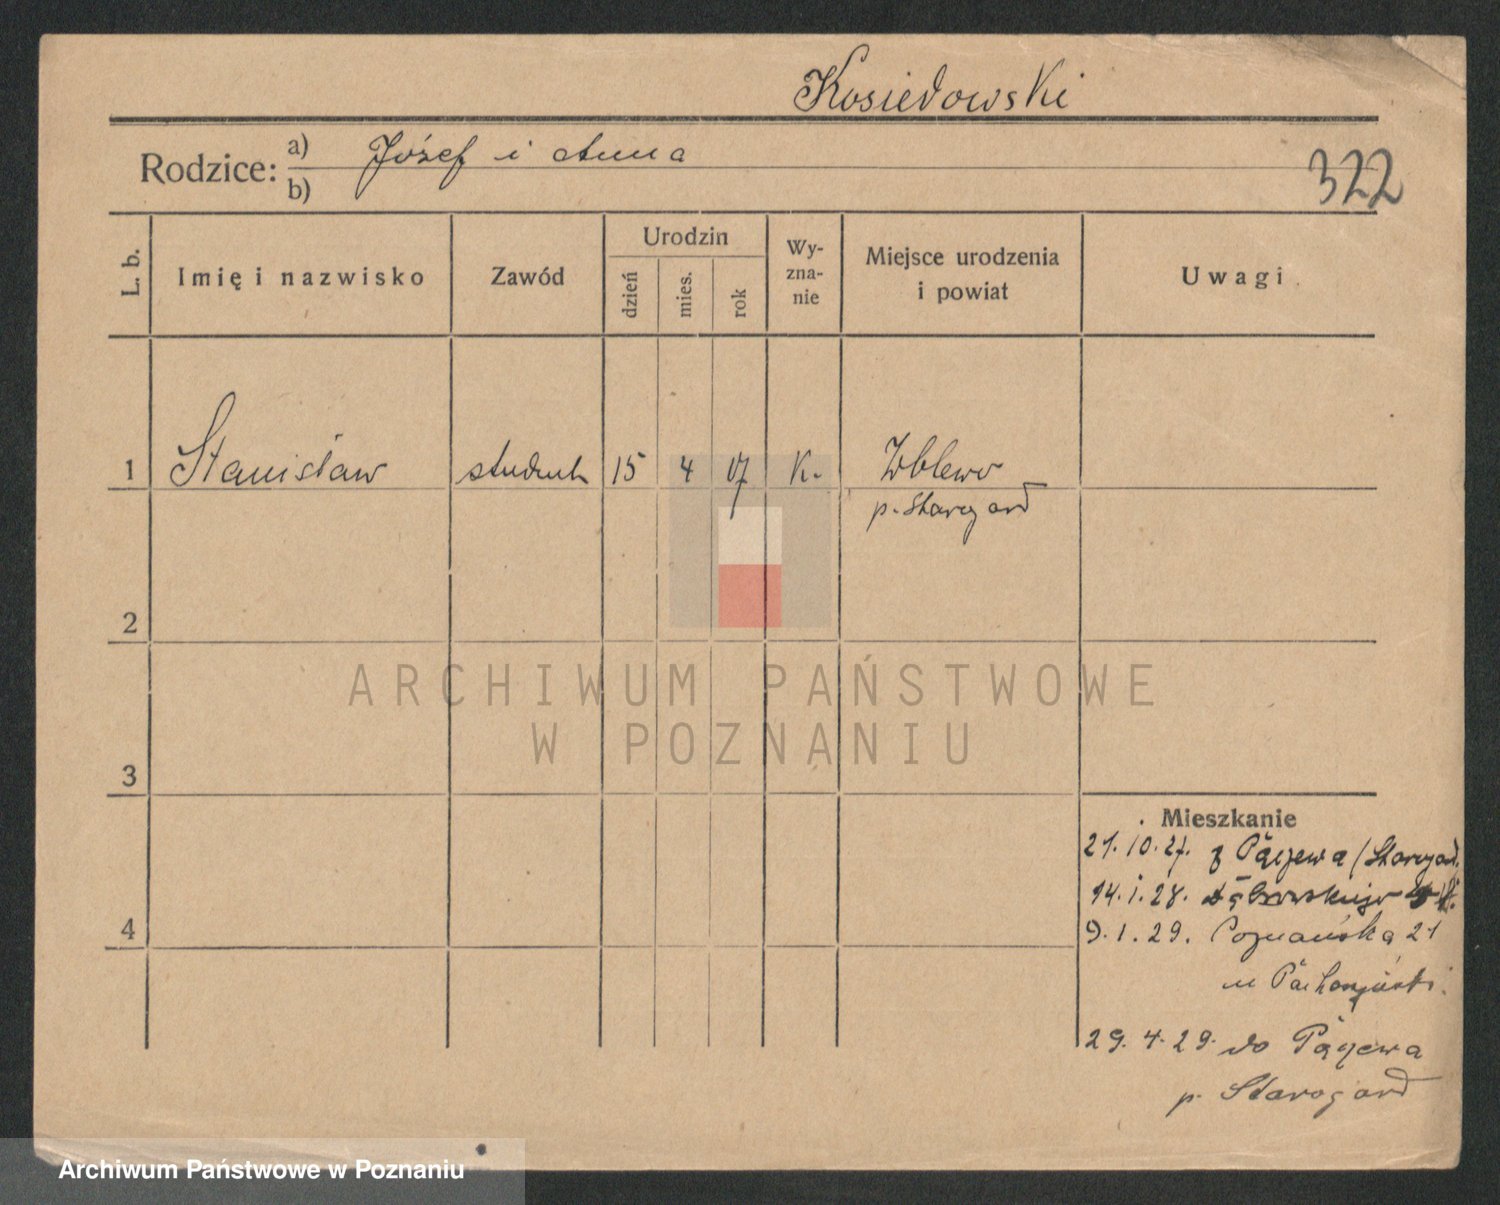 Kosiedowski
Rodzice: a) Józef i Anna
b)
322
L. b.
Imię i nazwisko
Zawód
Urodzin
dzień
mies.
rok
Wy-
zna-
nie
Miejsce urodzenia
i powiat
Uwagi
1 Stanisław student 15 4 07 K. Zblewo
p. Starogard
2
3
4
Mieszkanie
21.10.27. z (Starogard.
14.1.28. Dąbrowskiego
9.1.29. Poznańska 21
u
29.4.29. do
p. Starogard
ARCHIWUM PAŃSTWOWE
W POZNANIU
Archiwum Państwowe w Poznaniu